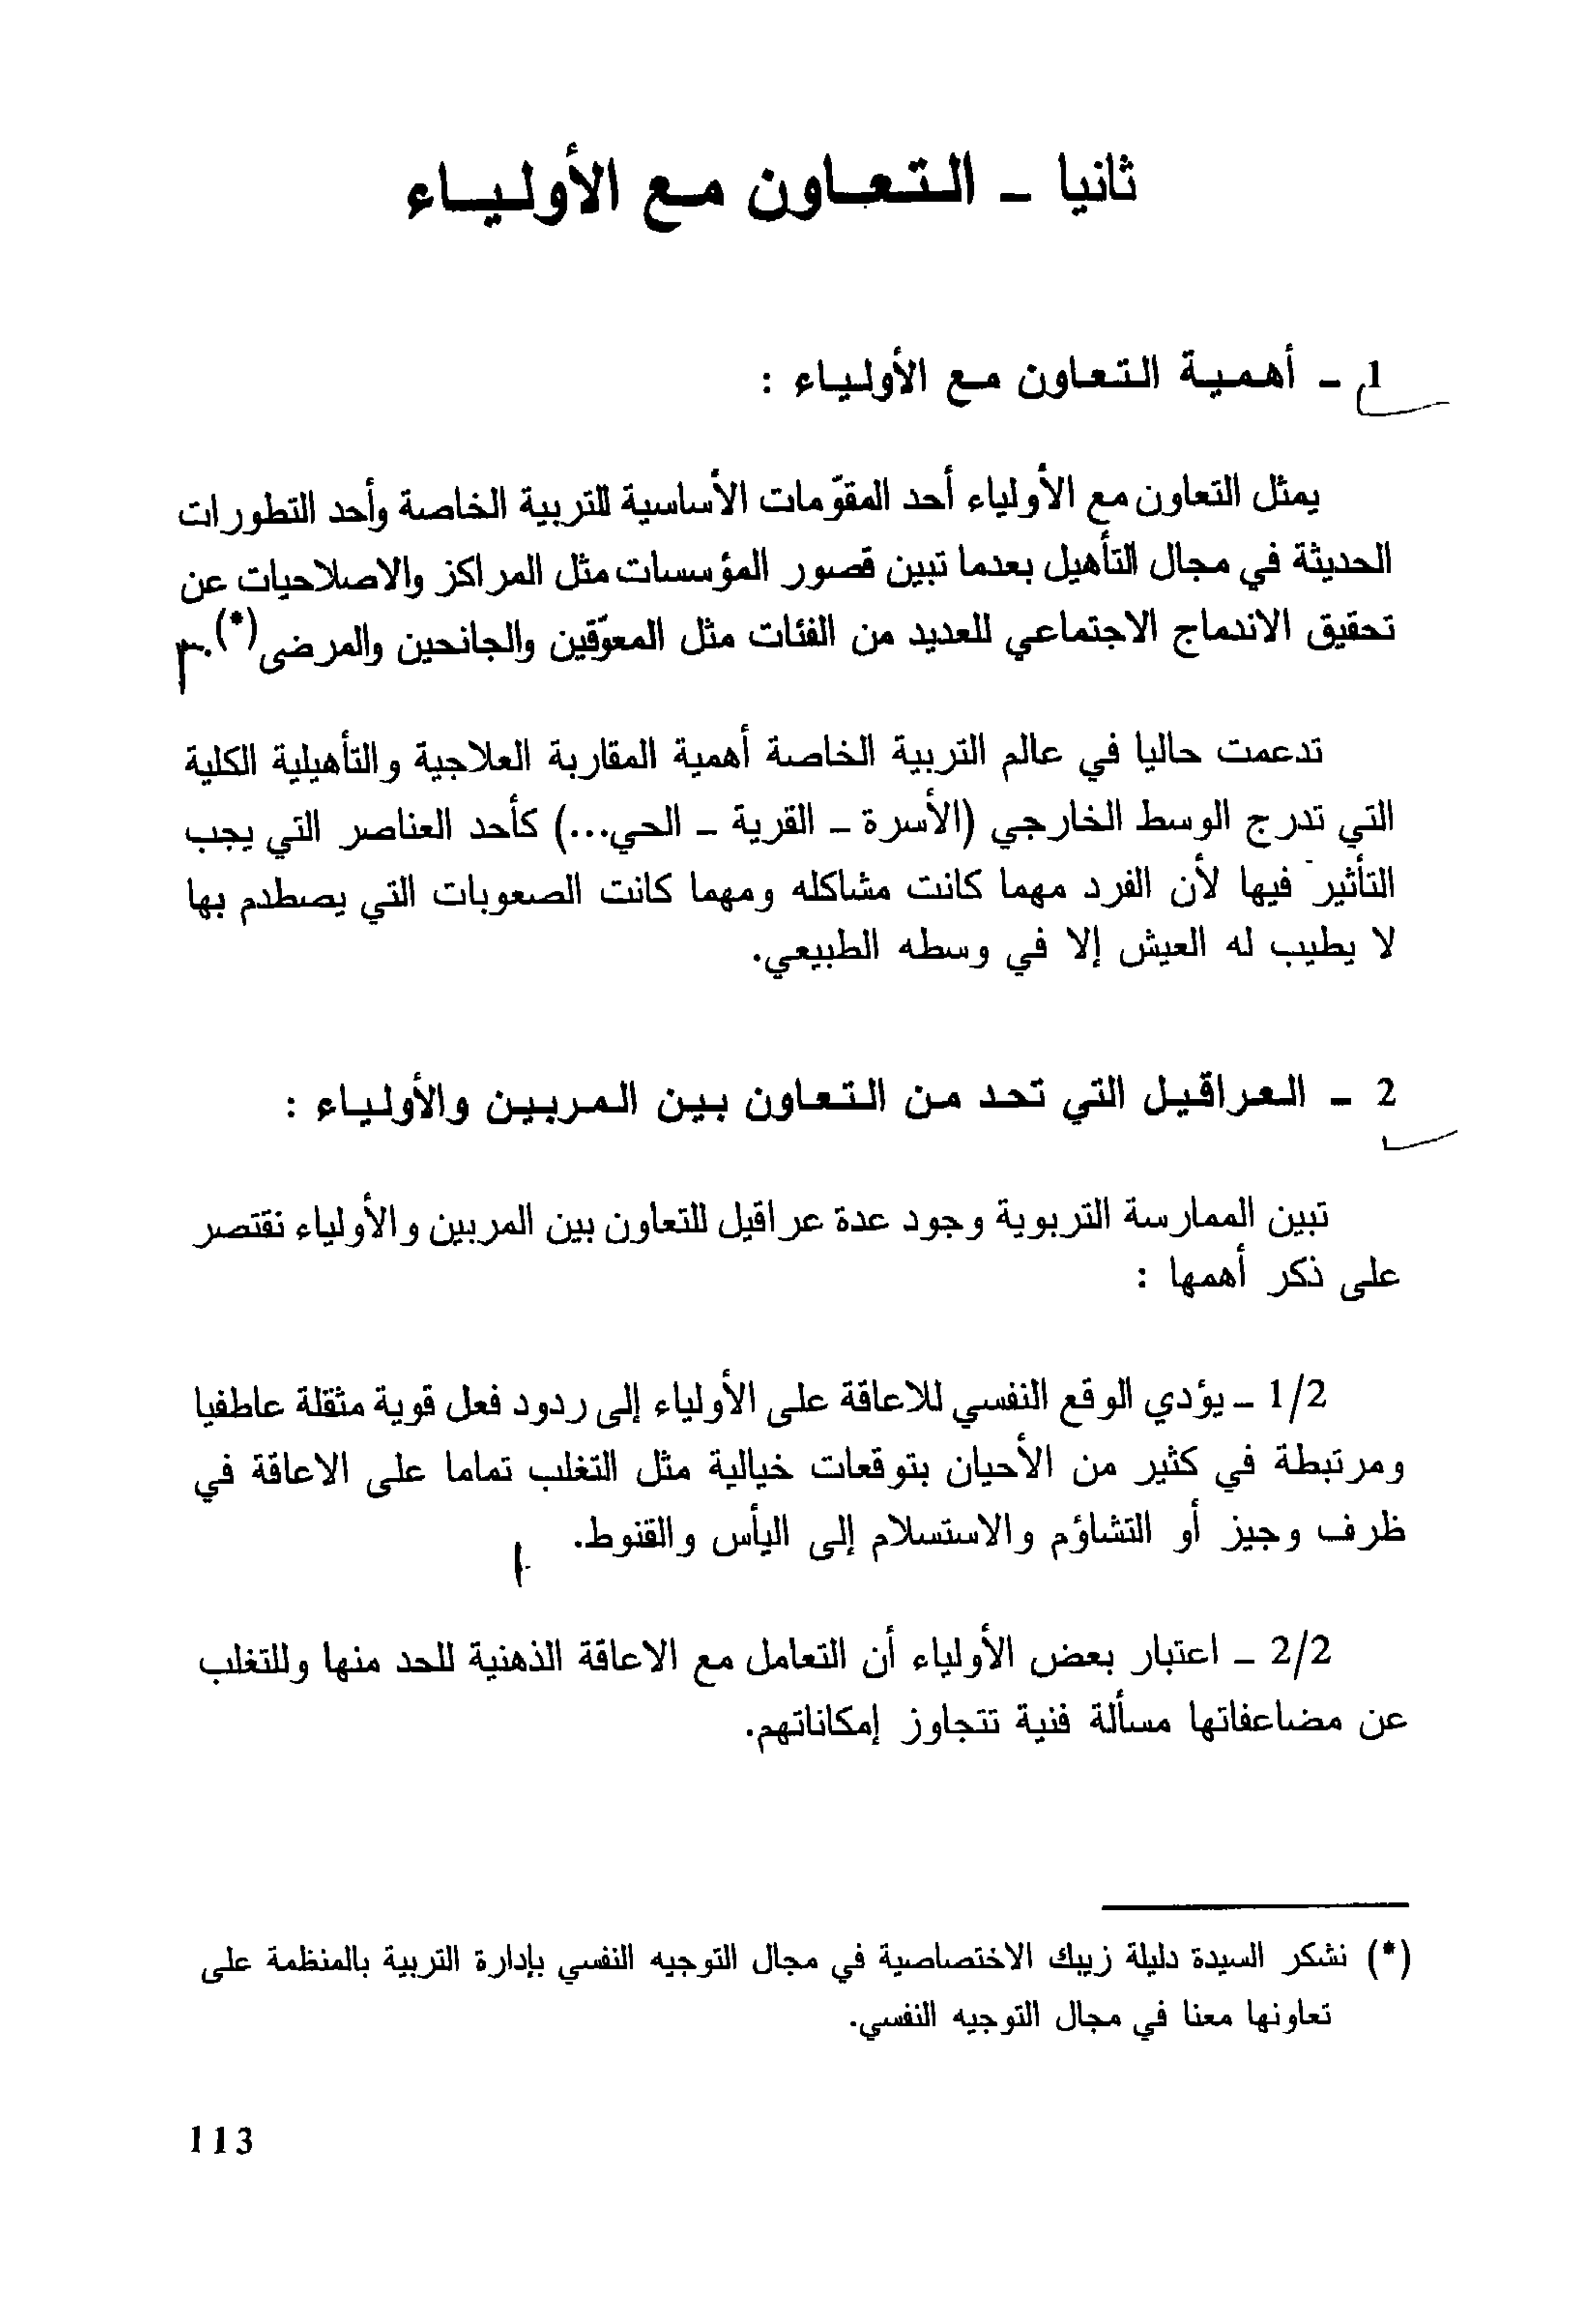 ثانيا - التعاون مع الأولياء
1 - أهمية التعاون مع الأولياء :
يمثل التعاون مع الأولياء أحد المقوّمات الأساسية للتربية الخاصة وأحد التطورات
الحديثة في مجال التأهيل بعدما تبين قصور المؤسسات مثل المراكز والاصلاحيات عن
تحقيق الاندماج الاجتماعي للعديد من الفئات مثل المعوّقين والجانحين والمرضى(*).
تدعمت حاليا في عالم التربية الخاصة أهمية المقاربة العلاجية والتأهيلية الكلية
التي تدرج الوسط الخارجي (الأسرة - القرية - الحي...) كأحد العناصر التي يجب
التأثير فيها لأن الفرد مهما كانت مشاكله ومهما كانت الصعوبات التي يصطدم بها
لا يطيب له العيش إلا في وسطه الطبيعي.
2 - العراقيل التي تحد من التعاون بين المربين والأولياء :
تبين الممارسة التربوية وجود عدة عراقيل للتعاون بين المربين والأولياء نقتصر
على ذكر أهمها :
1/2 - يؤدي الوقع النفسي للاعاقة على الأولياء إلى ردود فعل قوية مثقلة عاطفيا
ومرتبطة في كثير من الأحيان بتوقعات خيالية مثل التغلب تماما على الاعاقة في
ظرف وجيز أو التشاؤم والاستسلام إلى اليأس والقنوط.
2/2 - اعتبار بعض الأولياء أن التعامل مع الاعاقة الذهنية للحد منها وللتغلب
عن مضاعفاتها مسألة فنية تتجاوز إمكاناتهم.
(*) نشكر السيدة دليلة زيبك الاختصاصية في مجال التوجيه النفسي بإدارة التربية بالمنظمة على
تعاونها معنا في مجال التوجيه النفسي.
113